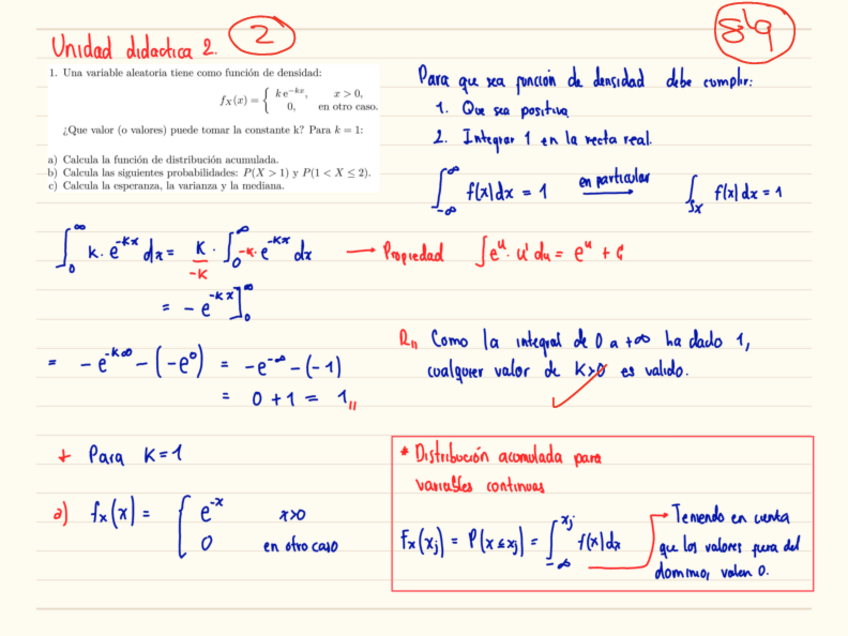 Unidad didactica 2.
2
8'9
1. Una variable aleatoria tiene como función de densidad:
f_X(x) = { ke^{-kx}, x > 0,
0, en otro caso.
¿Que valor (o valores) puede tomar la constante k? Para k = 1:
a) Calcula la función de distribución acumulada.
b) Calcula las siguientes probabilidades: P(X > 1) y P(1 < X ≤ 2).
c) Calcula la esperanza, la varianza y la mediana.
Para que sea función de densidad debe cumplir:
1. Que sea positiva
2. Integrar 1 en la recta real.
∫_{-∞}^{∞} f(x)dx = 1 en particular ∫_{Sx} f(x)dx = 1
∫_0^∞ k·e^{-kx} dx = K/-K · ∫_0^∞ -k·e^{-kx} dx → Propiedad ∫e^u · u' du = e^u + C
= -e^{-kx}]_0^∞
= -e^{-k∞} - (-e^0) = -e^{-∞} - (-1)
= 0 + 1 = 1,,
R,, Como la integral de 0 a +∞ ha dado 1,
cualquier valor de K>0 es valido.
+ Para K=1
a) f_x(x) = { e^{-x} x>0
0 en otro caso
* Distribución acomulada para
variables continuas
F_x(x_j) = P(x ≤ x_j) = ∫_{-∞}^{x_j} f(x)dx
→ Temendo en cuenta
que los valores fuera del
dominio, valen 0.